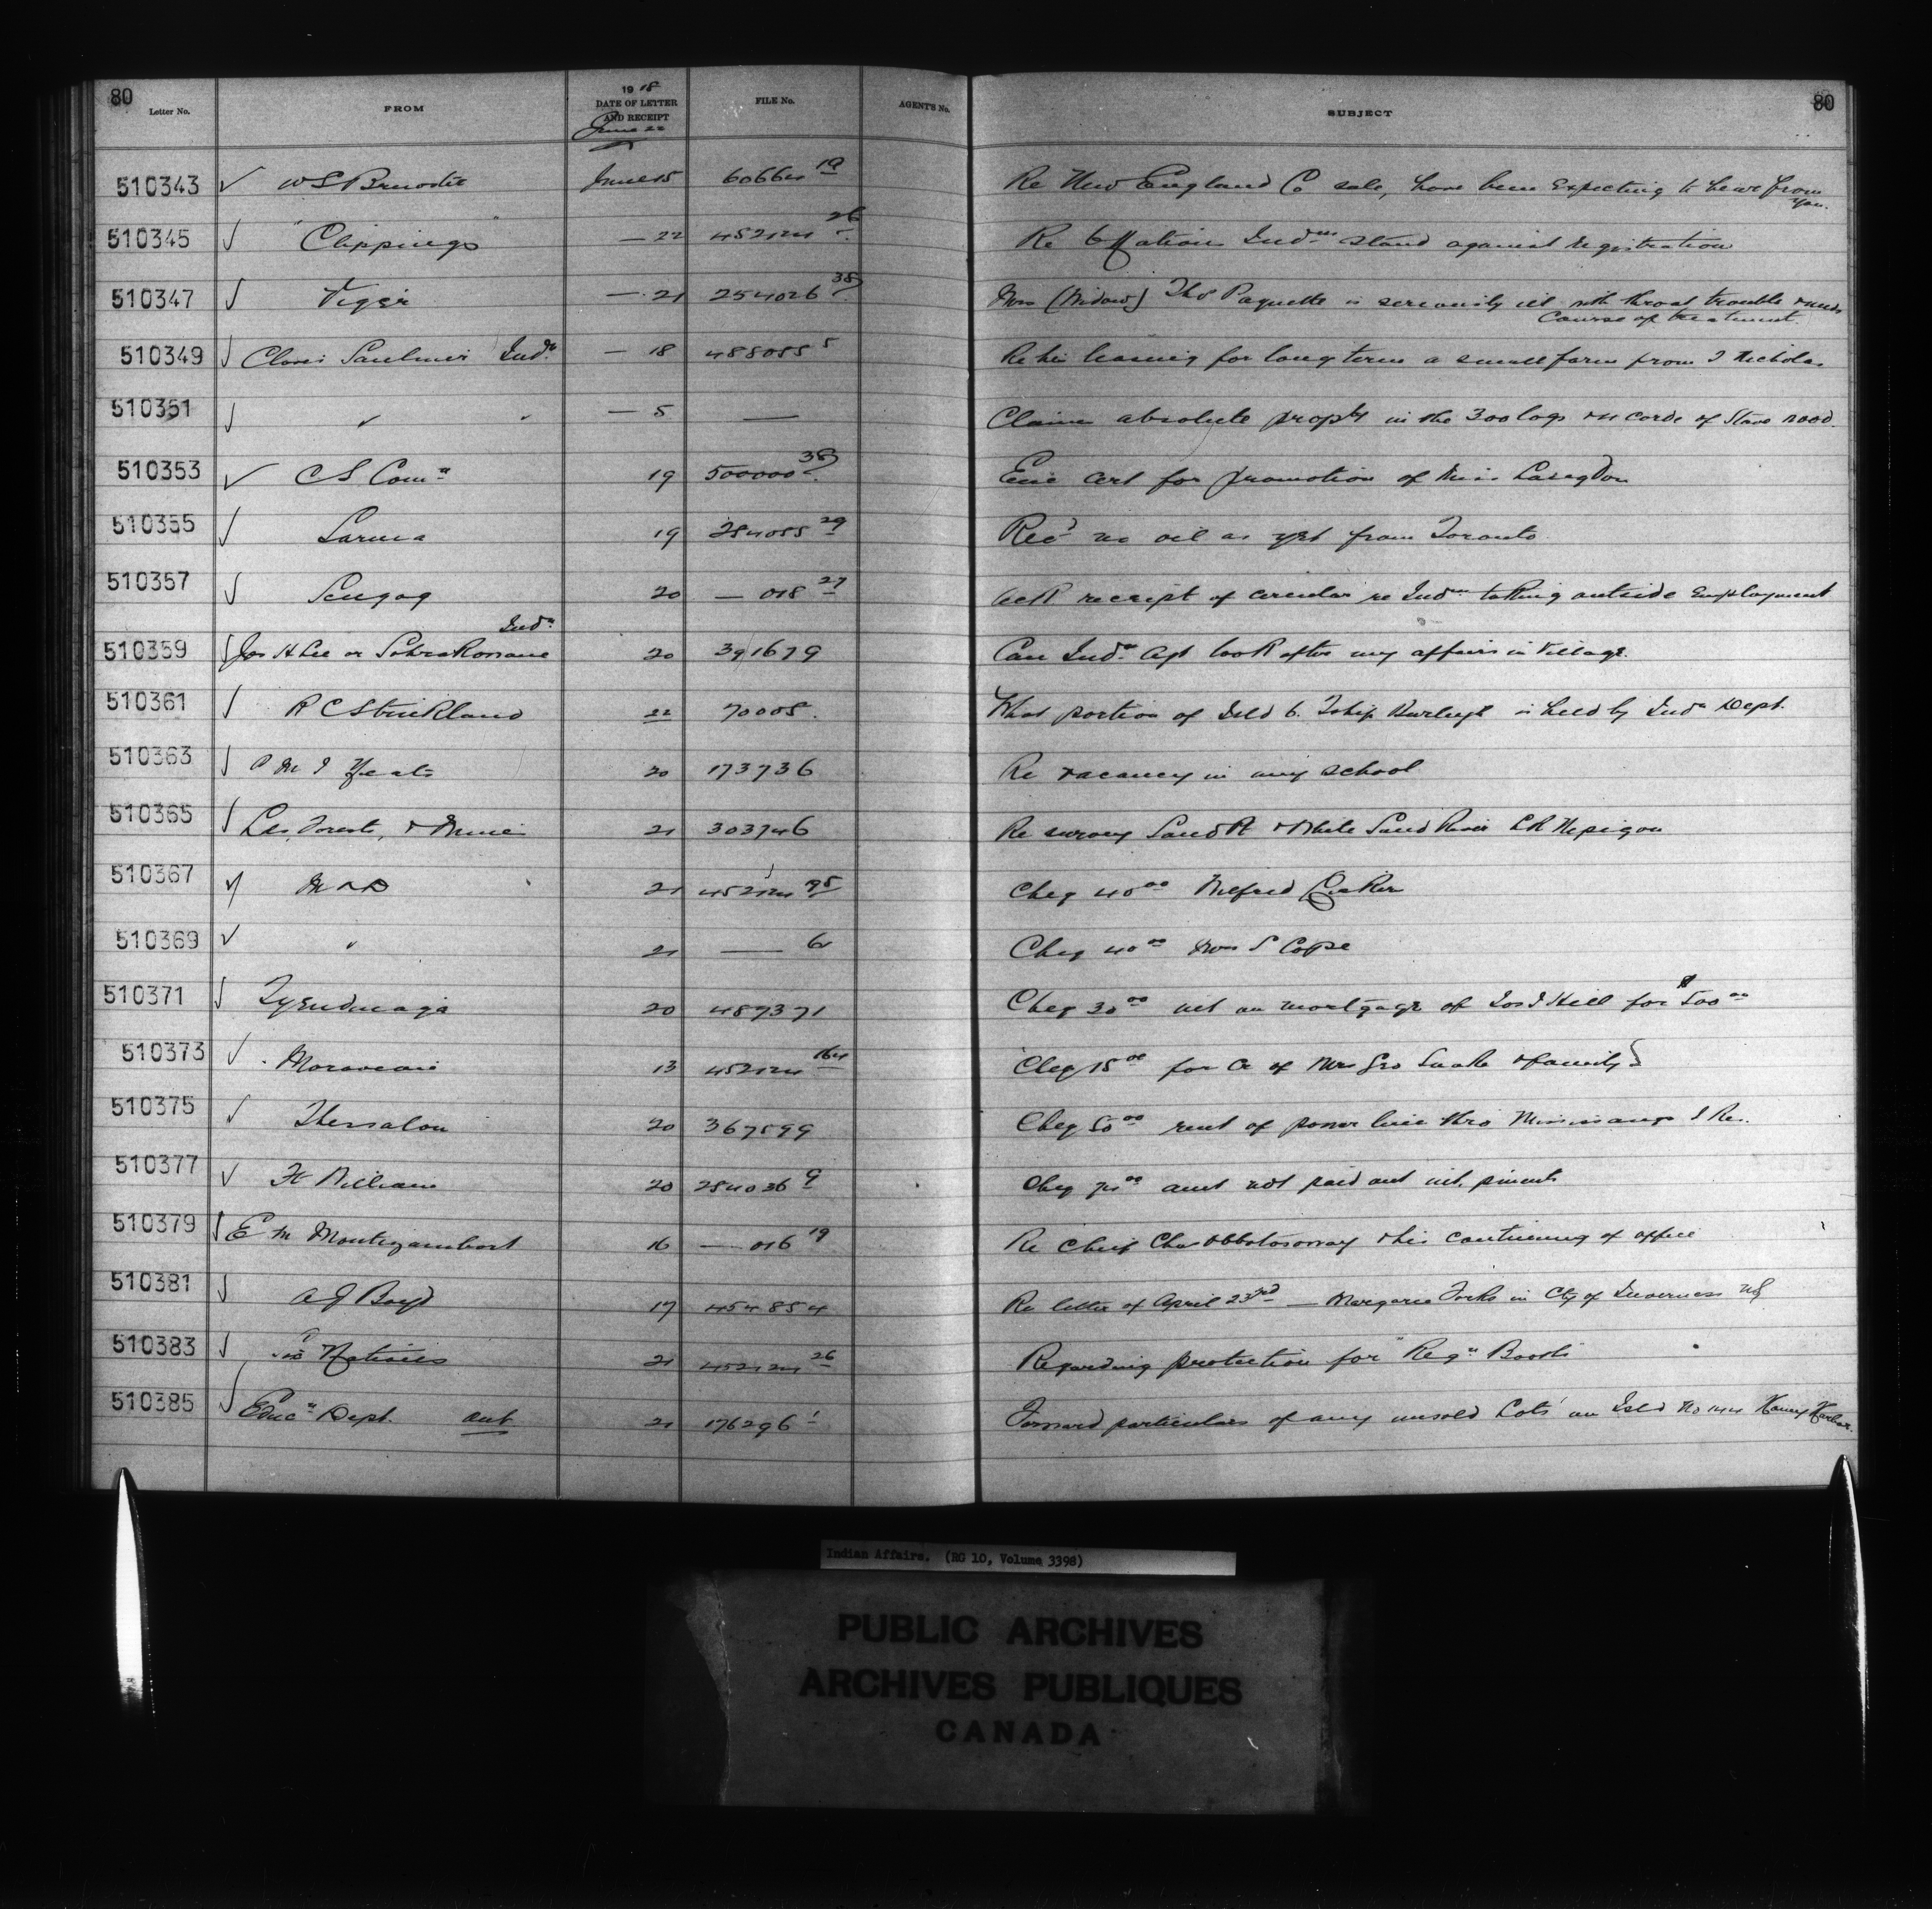 80
Letter No. FROM 1918 DATE OF LETTER AND RECEIPT FILE No. AGENT'S No. SUBJECT 80
June 22
510343 ✓ W S June 15 60664 19 Re New England Co sale, have been expecting to hear from
you.
510345 ✓ "Clippings" — 22 452124 26 Re 6 Nation Indns stand against registration
510347 ✓ Viger — 21 254026 38 Mrs (Widow) Thos Paquette is seriously ill with throat trouble
course of treatment.
510349 ✓ Indn — 18 488055 5 Re his leasing for long term a small farm from J Nicholas
510351 ✓ " " — 5 — Claims absolute propty in the 300 logs cords of Stove wood.
510353 ✓ C S Comn 19 500000 38 Enc cert for promotion of Miss
510355 ✓ Sarnia 19 254055 29 Recd no oil as yet from Toronto
510357 ✓ Scugog 20 — 018 27 Ack receipt of circular re Indns taking outside employment
Indn
510359 ✓ Jos H Lee or 20 391679 Can Indn Agt look after my affairs in Village.
510361 ✓ R C Strickland 22 70005. What portion of Isld 6. Tship Burleigh is held by Indn Dept.
510363 ✓ M J Yeats 20 173736 Re vacancy in any school
510365 ✓ Lds, Forests, & Mines 21 303746 Re survey Sand Pt & White Sand River I.R Nepigon
510367 ✓ M & D 21 452124 95 Cheq 40 00 Wilfred
510369 ✓ " 21 — 6 Cheq 40 00 Mrs S Cope
510371 ✓ Tyendinaga 20 489371 Cheq 30 00 int on mortgage of Jos J Hill for $500 00
510373 ✓ Moravian 13 452124 164 Cheq 15 00 for Cr of Mrs Geo Snake & family
510375 ✓ Thessalon 20 367599 Cheq 50 00 rent of power line thro Mississauga I Re.
510377 ✓ Ft William 20 254036 9 Cheq amt not paid out int. pments
510379 ✓ E M Montizambert 16 — 016 19 Re Chief Chas & his continuing of office
510381 ✓ A J Boyd 17 454854 Re letter of April 23rd — Margaree Forks in Cty of Inverness NS
510383 ✓ Six Nations 21 452124 26 Regarding protection for "Regn Booth"
510385 ✓ Educn Dept. Ont 21 176296 1 Forward particulars of any unsold Lots on Isld No 144 Honey Harbor.
Indian Affairs. (RG 10, Volume 3398)
PUBLIC ARCHIVES
ARCHIVES PUBLIQUES
CANADA